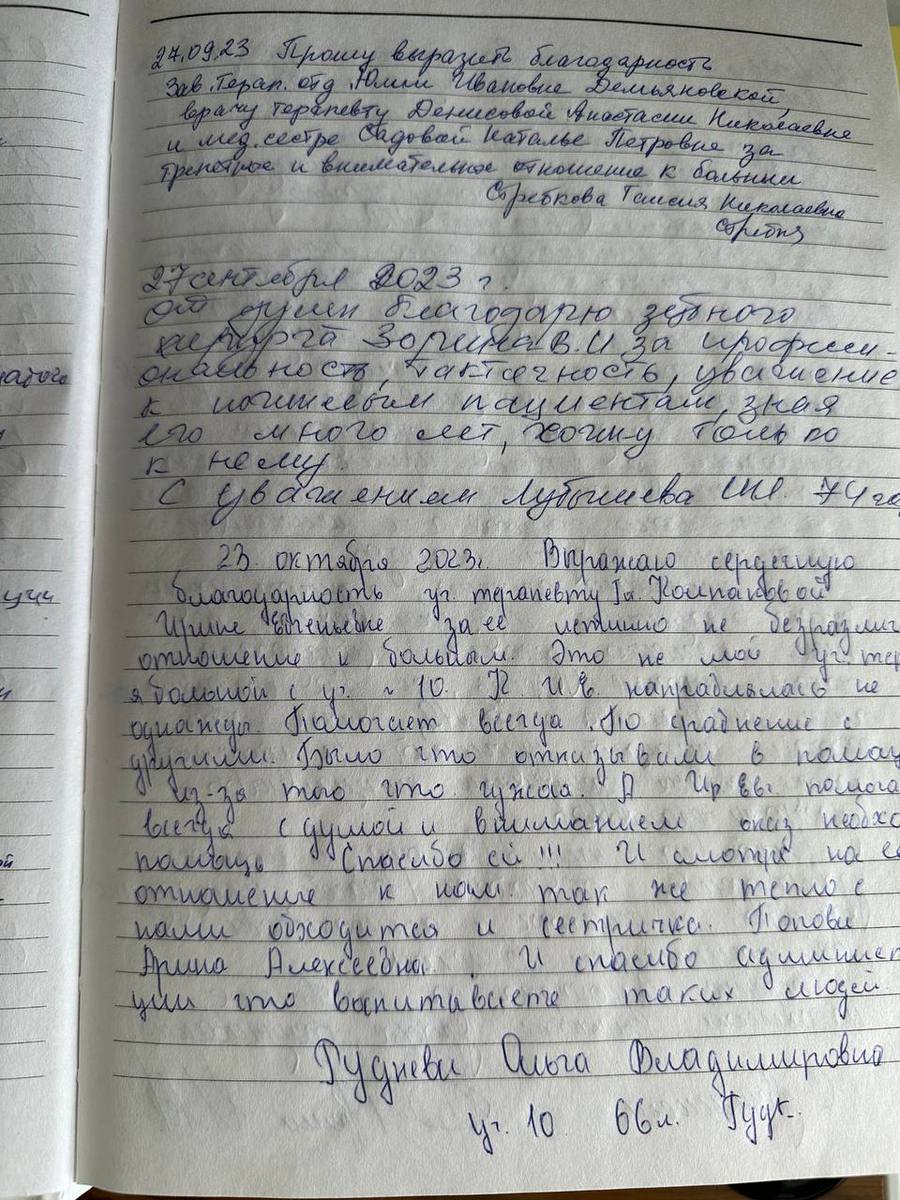 27.09.23 Прошу выразить благодарность
Зав. Терап. отд Юлии Ивановне Демьяновской,
врачу терапевту Денисовой Анастасии Николаевне
и мед. сестре Садовой Наталье Петровне за
трепетное и внимательное отношение к больным
Николаевна
27 сентября 2023 г.
От души благодарю зубного
хирурга Зорина В.И за професси-
ональность, тактичность, уважение
к пациентам, зная
его много лет, хожу только
к нему.
С уважением Лубышева 74
23 октября 2023г. Выражаю сердечную
благодарность уч. терапевту Колпаковой
Ирине Евгеньевне за ее истинно не безразлич
отношение к больным. Это не мой уч. тер
я больной с уч. 10. К И.Е направлялась не
однажды. Помогает всегда. По сравнение с
другими. Было что отказывали в помощ
из-за того что чужая. А Ир Ев. помога
всегда с душой и вниманием оказ необхо
помощь Спасибо ей!!! И смотря на ее
отношение к нам так же тепло с
нами обходится и сестричка. Попова
Арина Алексеевна. И спасибо админист
ции что воспитываете таких людей
Руднева Ольга Владимировна
уч. 10 66л.
натого
ции
ой